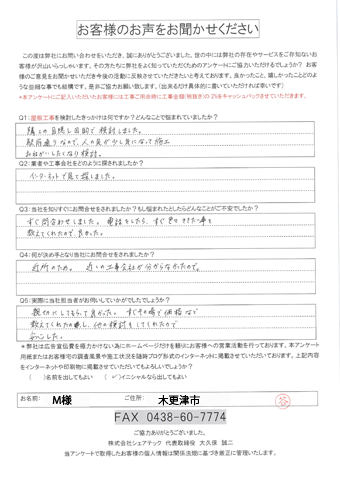 お客様のお声をお聞かせください
この度は弊社にお問い合わせをいただき、誠にありがとうございました。世の中には弊社の存在やサービスをご存知ないお
客様が沢山いらっしゃいます。その方たちに弊社をよく知っていただくためのアンケートにご協力いただけるでしょうか？お
客様のご意見をお聞かせいただき今後の活動に反映させていただきたいと考えております。良かったこと、嬉しかったことどのよ
うな些細な事でも結構です。是非ご協力お願い致します。（出来るだけ具体的に書いていただければ幸いです）
*本アンケートにご記入いただいたお客様には工事ご用命時に工事金額（税抜き）の2%をキャッシュバックさせていただきます。
Q1：屋根工事を検討したきっかけは何ですか？どんなことで悩まれていましたか？
隣との目隠し目的で検討しました。
駅前通りなので、人の目が少し気になって施工
お話がしたくなり検討。
Q2：業者や工事会社をどのように探されましたか？
インターネットで見て探しました。
Q3：当社を知りすぐにお問合せをされましたか？もし悩まれたとしたらどんなことがご不安でしたか？
すぐ問合わせしました。電話をしたら、すぐ
教えてくれたので良かった。
Q4：何が決め手となり当社にお問合せをされましたか？
近所のため。近くの工事会社が分からなかたので。
Q5：実際に当社担当者がお伺いしていかがでしたでしょうか？
親切にしてもらって良かった。すぐその場で価格など
教えてくれたの 他の検討もしてくれたので
安心した。
*弊社は広告宣伝費を極力かけない為にホームページだけを頼りにお客様への営業活動を行っております。本アンケート
用紙またはお客様宅の調査風景や施工状況を随時ブログ形式のインターネットに掲載させていただいております。上記内容
をインターネットや印刷物に掲載させていただいてもよろしいでしょうか？
（　）名前を出しても良い　（✓）イニシャルなら出してもよい
お名前： M様 ご住所： 木更津市
FAX 0438-60-7774
ご協力ありがとうございました。
株式会社シェアテック 代表取締役 大久保 誠二
当アンケートで取得したお客様の個人情報は関係法規に基づき厳正に管理いたします。